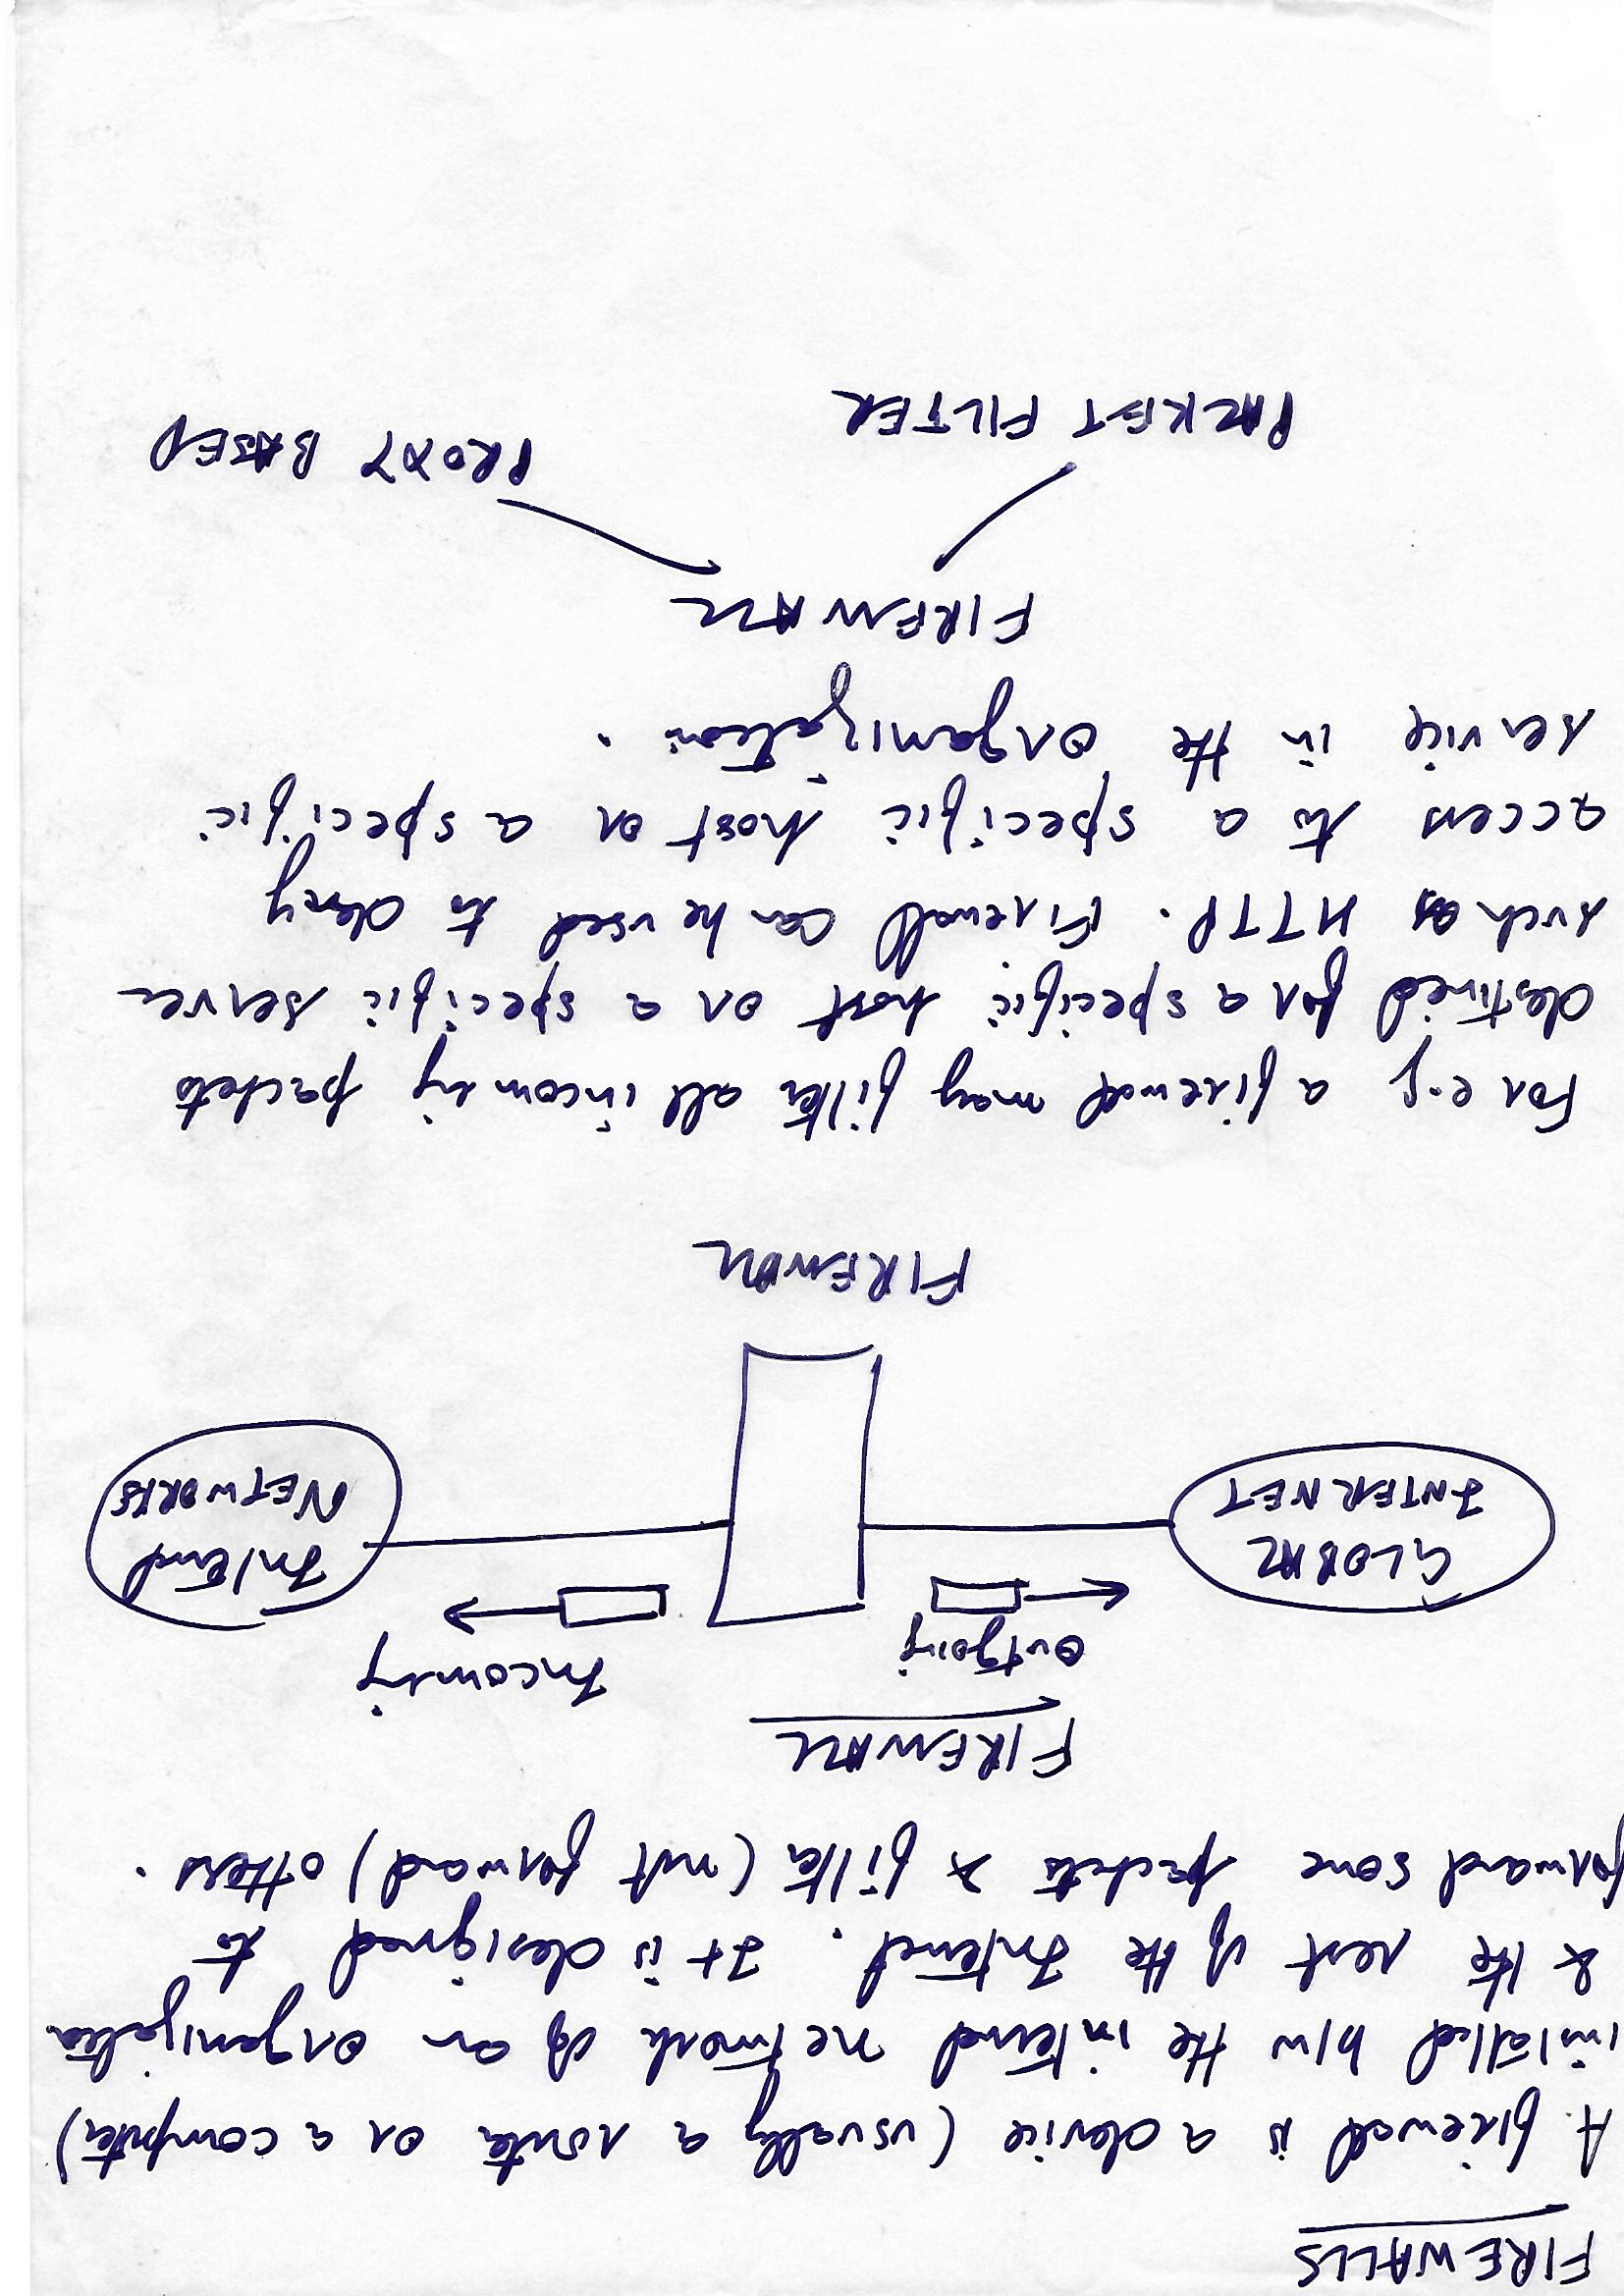 FIREWALLS
A. firewall is a device (usually a router or a computer)
installed b/w the internal network of an organization
& the rest of the Internet. It is designed to
forward some packets & filter (not forward) others.
FIREWALL
Outgoing
Incoming
GLOBAL
INTERNET
Internal
NETWORKS
FIREWALL
For e.g a firewall may filter all incoming packets
destined for a specific host or a specific server
such as HTTP. Firewall can be used to deny
access to a specific host or a specific
service in the organization.
FIREWALL
PACKET FILTER
PROXY BASED